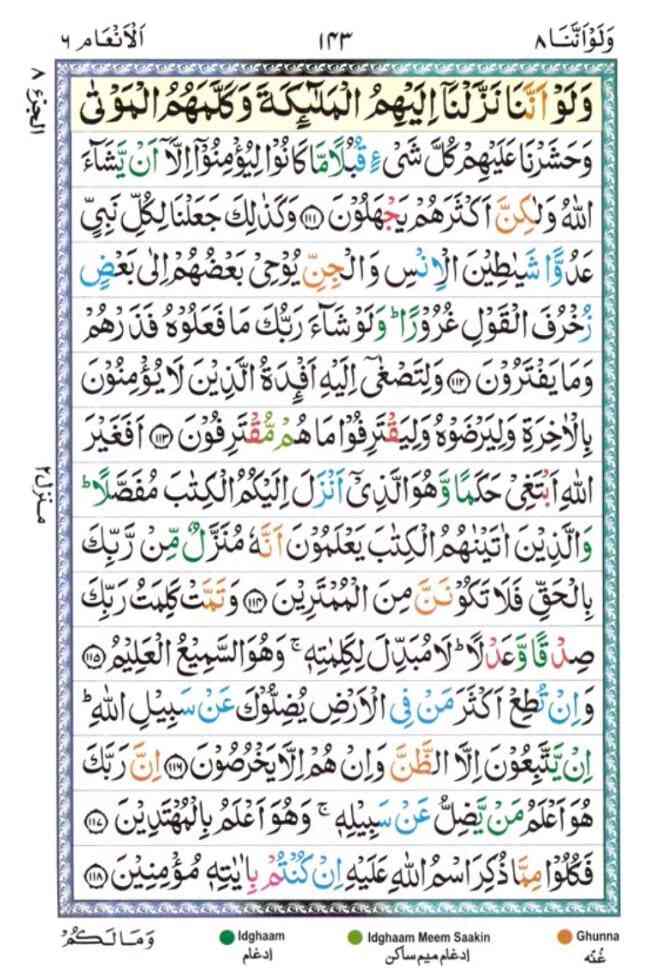 وَلَوْ اَنَّنَا ٨ ١٤٣ اَلْاَنْعَام ٦
الجزء ٨
وَلَوْ اَنَّنَا نَزَّلْنَاۤ اِلَيْهِمُ الْمَلٰٓئِكَةَ وَكَلَّمَهُمُ الْمَوْتٰى
وَحَشَرْنَا عَلَيْهِمْ كُلَّ شَىْءٍ قُبُلًا مَّا كَانُوْا لِيُؤْمِنُوْۤا اِلَّاۤ اَنْ يَّشَآءَ
اللّٰهُ وَلٰكِنَّ اَكْثَرَهُمْ يَجْهَلُوْنَ ۝١١١ وَكَذٰلِكَ جَعَلْنَا لِكُلِّ نَبِىٍّ
عَدُوًّا شَيٰطِيْنَ الْاِنْسِ وَالْجِنِّ يُوْحِىْ بَعْضُهُمْ اِلٰى بَعْضٍ
زُخْرُفَ الْقَوْلِ غُرُوْرًاؕ وَلَوْ شَآءَ رَبُّكَ مَا فَعَلُوْهُ فَذَرْهُمْ
وَمَا يَفْتَرُوْنَ ۝١١٢ وَلِتَصْغٰٓى اِلَيْهِ اَفْـِٕدَةُ الَّذِيْنَ لَا يُؤْمِنُوْنَ
بِالْاٰخِرَةِ وَلِيَرْضَوْهُ وَلِيَقْتَرِفُوْا مَا هُمْ مُّقْتَرِفُوْنَ ۝١١٣ اَفَغَيْرَ
منزل ٢
اللّٰهِ اَبْتَغِىْ حَكَمًا وَّهُوَ الَّذِىْۤ اَنْزَلَ اِلَيْكُمُ الْكِتٰبَ مُفَصَّلًاؕ
وَالَّذِيْنَ اٰتَيْنٰهُمُ الْكِتٰبَ يَعْلَمُوْنَ اَنَّهٗ مُنَزَّلٌ مِّنْ رَّبِّكَ
بِالْحَقِّ فَلَا تَكُوْنَنَّ مِنَ الْمُمْتَرِيْنَ ۝١١٤ وَتَمَّتْ كَلِمَتُ رَبِّكَ
صِدْقًا وَّعَدْلًاؕ لَا مُبَدِّلَ لِكَلِمٰتِهٖۚ وَهُوَ السَّمِيْعُ الْعَلِيْمُ ۝١١٥
وَاِنْ تُطِعْ اَكْثَرَ مَنْ فِى الْاَرْضِ يُضِلُّوْكَ عَنْ سَبِيْلِ اللّٰهِؕ
اِنْ يَّتَّبِعُوْنَ اِلَّا الظَّنَّ وَاِنْ هُمْ اِلَّا يَخْرُصُوْنَ ۝١١٦ اِنَّ رَبَّكَ
هُوَ اَعْلَمُ مَنْ يَّضِلُّ عَنْ سَبِيْلِهٖۚ وَهُوَ اَعْلَمُ بِالْمُهْتَدِيْنَ ۝١١٧
فَكُلُوْا مِمَّا ذُكِرَ اسْمُ اللّٰهِ عَلَيْهِ اِنْ كُنْتُمْ بِاٰيٰتِهٖ مُؤْمِنِيْنَ ۝١١٨
وَمَا لَكُمْ
Idghaam Idghaam Meem Saakin Ghunna
اِدغام اِدغام میم ساکن غُنّه